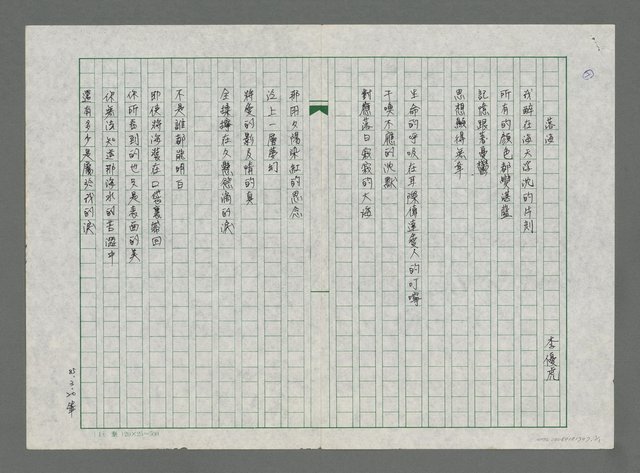 落海
李優虎
我醉在海天浮沈的片刻
所有的顏色都變湛藍
記憶跟著憂鬱
思想顯得無辜
生命的呼吸在耳際傳達愛人的叮嚀
千喚不應的沈默
對應落日寂寂的大海
那因夕陽染紅的思念
泛上一層夢幻
將愛的影及情的真
全揉擰在久懸欲滴的淚
不是誰都能明白
即使將海藍在口袋裏帶回
你所看到的也只是表面的美
你無法知道那海水的苦澀中
還有多少是屬於我的淚